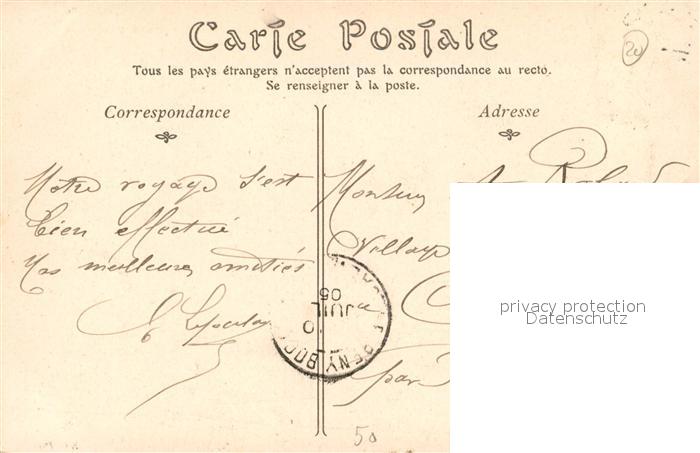 Carte Postale
Tous les pays étrangers n'acceptent pas la correspondance au recto.
Se renseigner à la poste.
Correspondance
Adresse
20
Notre voyage s'est
bien effectué
Mes meilleures amitiés
Monsieur
Village
par
BENY BOC
10
JUIL
05
50
privacy protection
Datenschutz